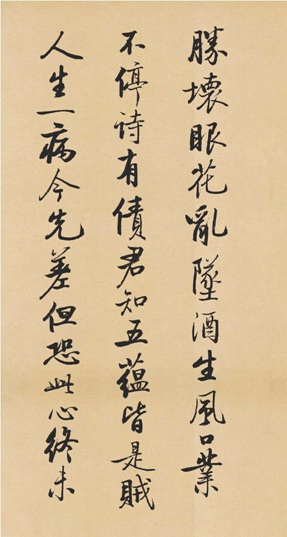 勝壊眼花亂墜酒生風口業
不停诗有債君知五蕴皆是賊
人生一病今先差但恐此心终未